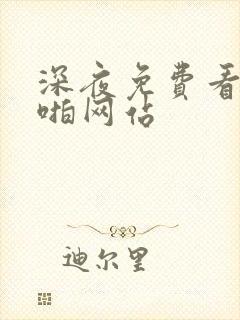 深夜免費看
啪网佔
迪尔里